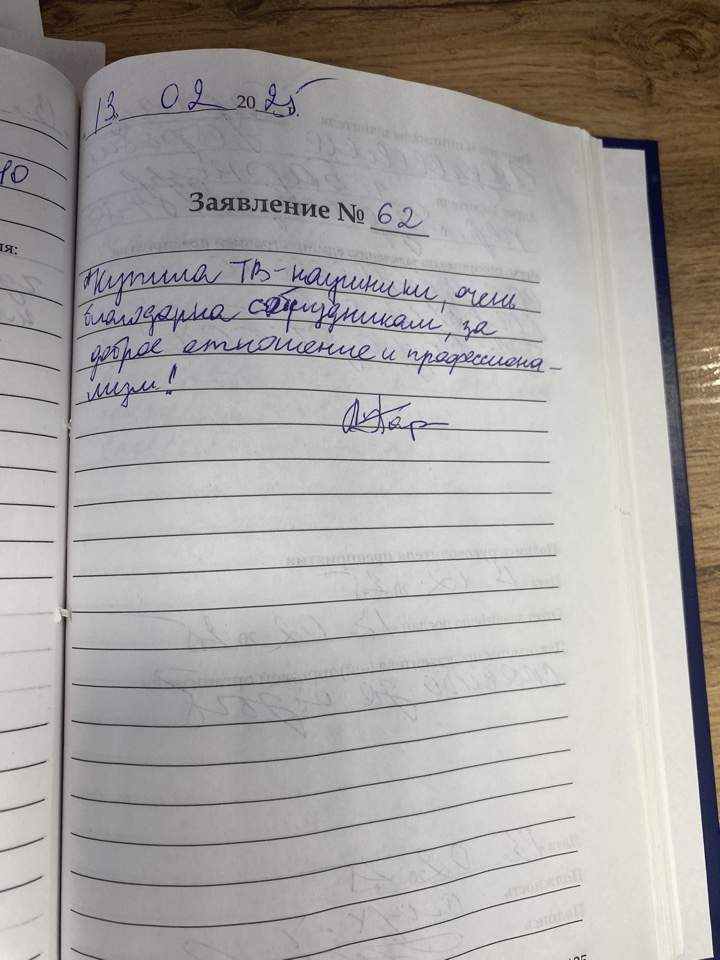 13. 02 2025.
10
Заявление № 62
ия:
Купила ТВ-наушники, очень
благодарна сотрудникам, за
доброе отношение и профессиона-
лизм!